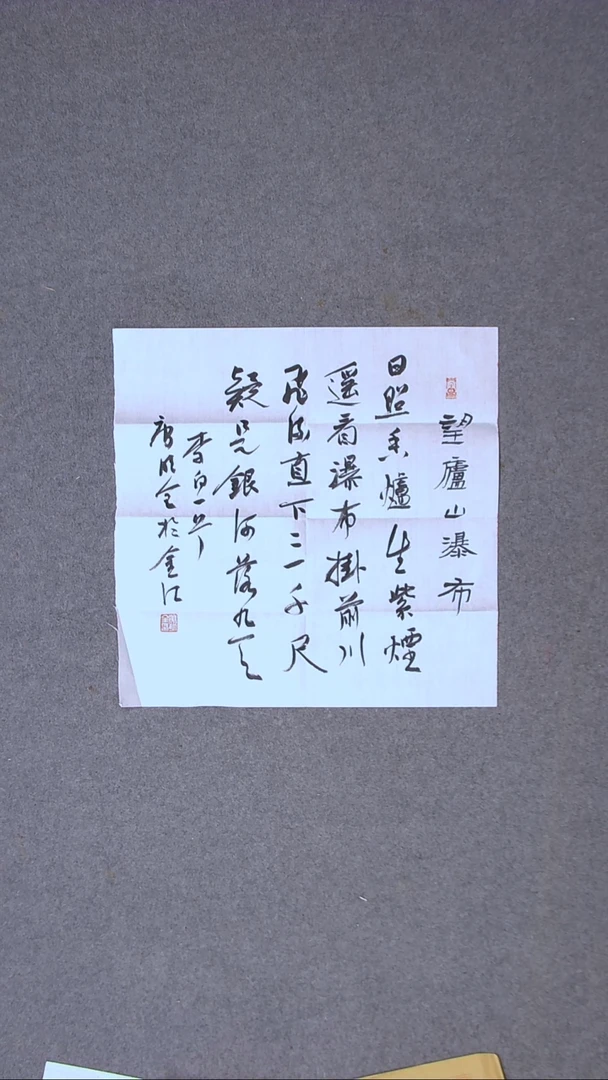 望廬山瀑布
日照香爐生紫煙
遥看瀑布掛前川
飛流直下三千尺
疑是銀河落九天
李白
唐明全於金江